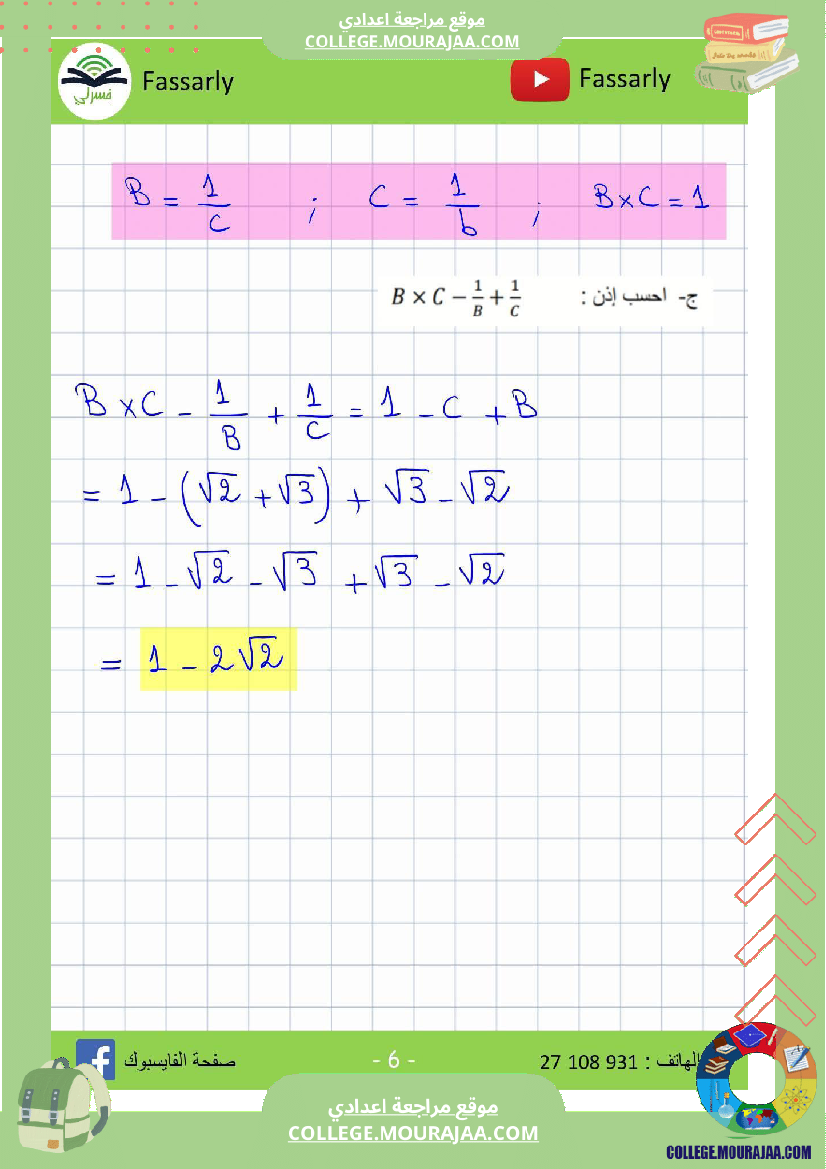 موقع مراجعة اعدادي
COLLEGE.MOURAJAA.COM
فسرلي Fassarly Fassarly
B = 1/C ; C = 1/b ; B×C = 1
ج- احسب إذن : B × C − 1/B + 1/C
B × C − 1/B + 1/C = 1 − C + B
= 1 − (√2 + √3) + √3 − √2
= 1 − √2 − √3 + √3 − √2
= 1 − 2√2
صفحة الفايسبوك - 6 - الهاتف : 27 108 931
موقع مراجعة اعدادي
COLLEGE.MOURAJAA.COM
COLLEGE.MOURAJAA.COM